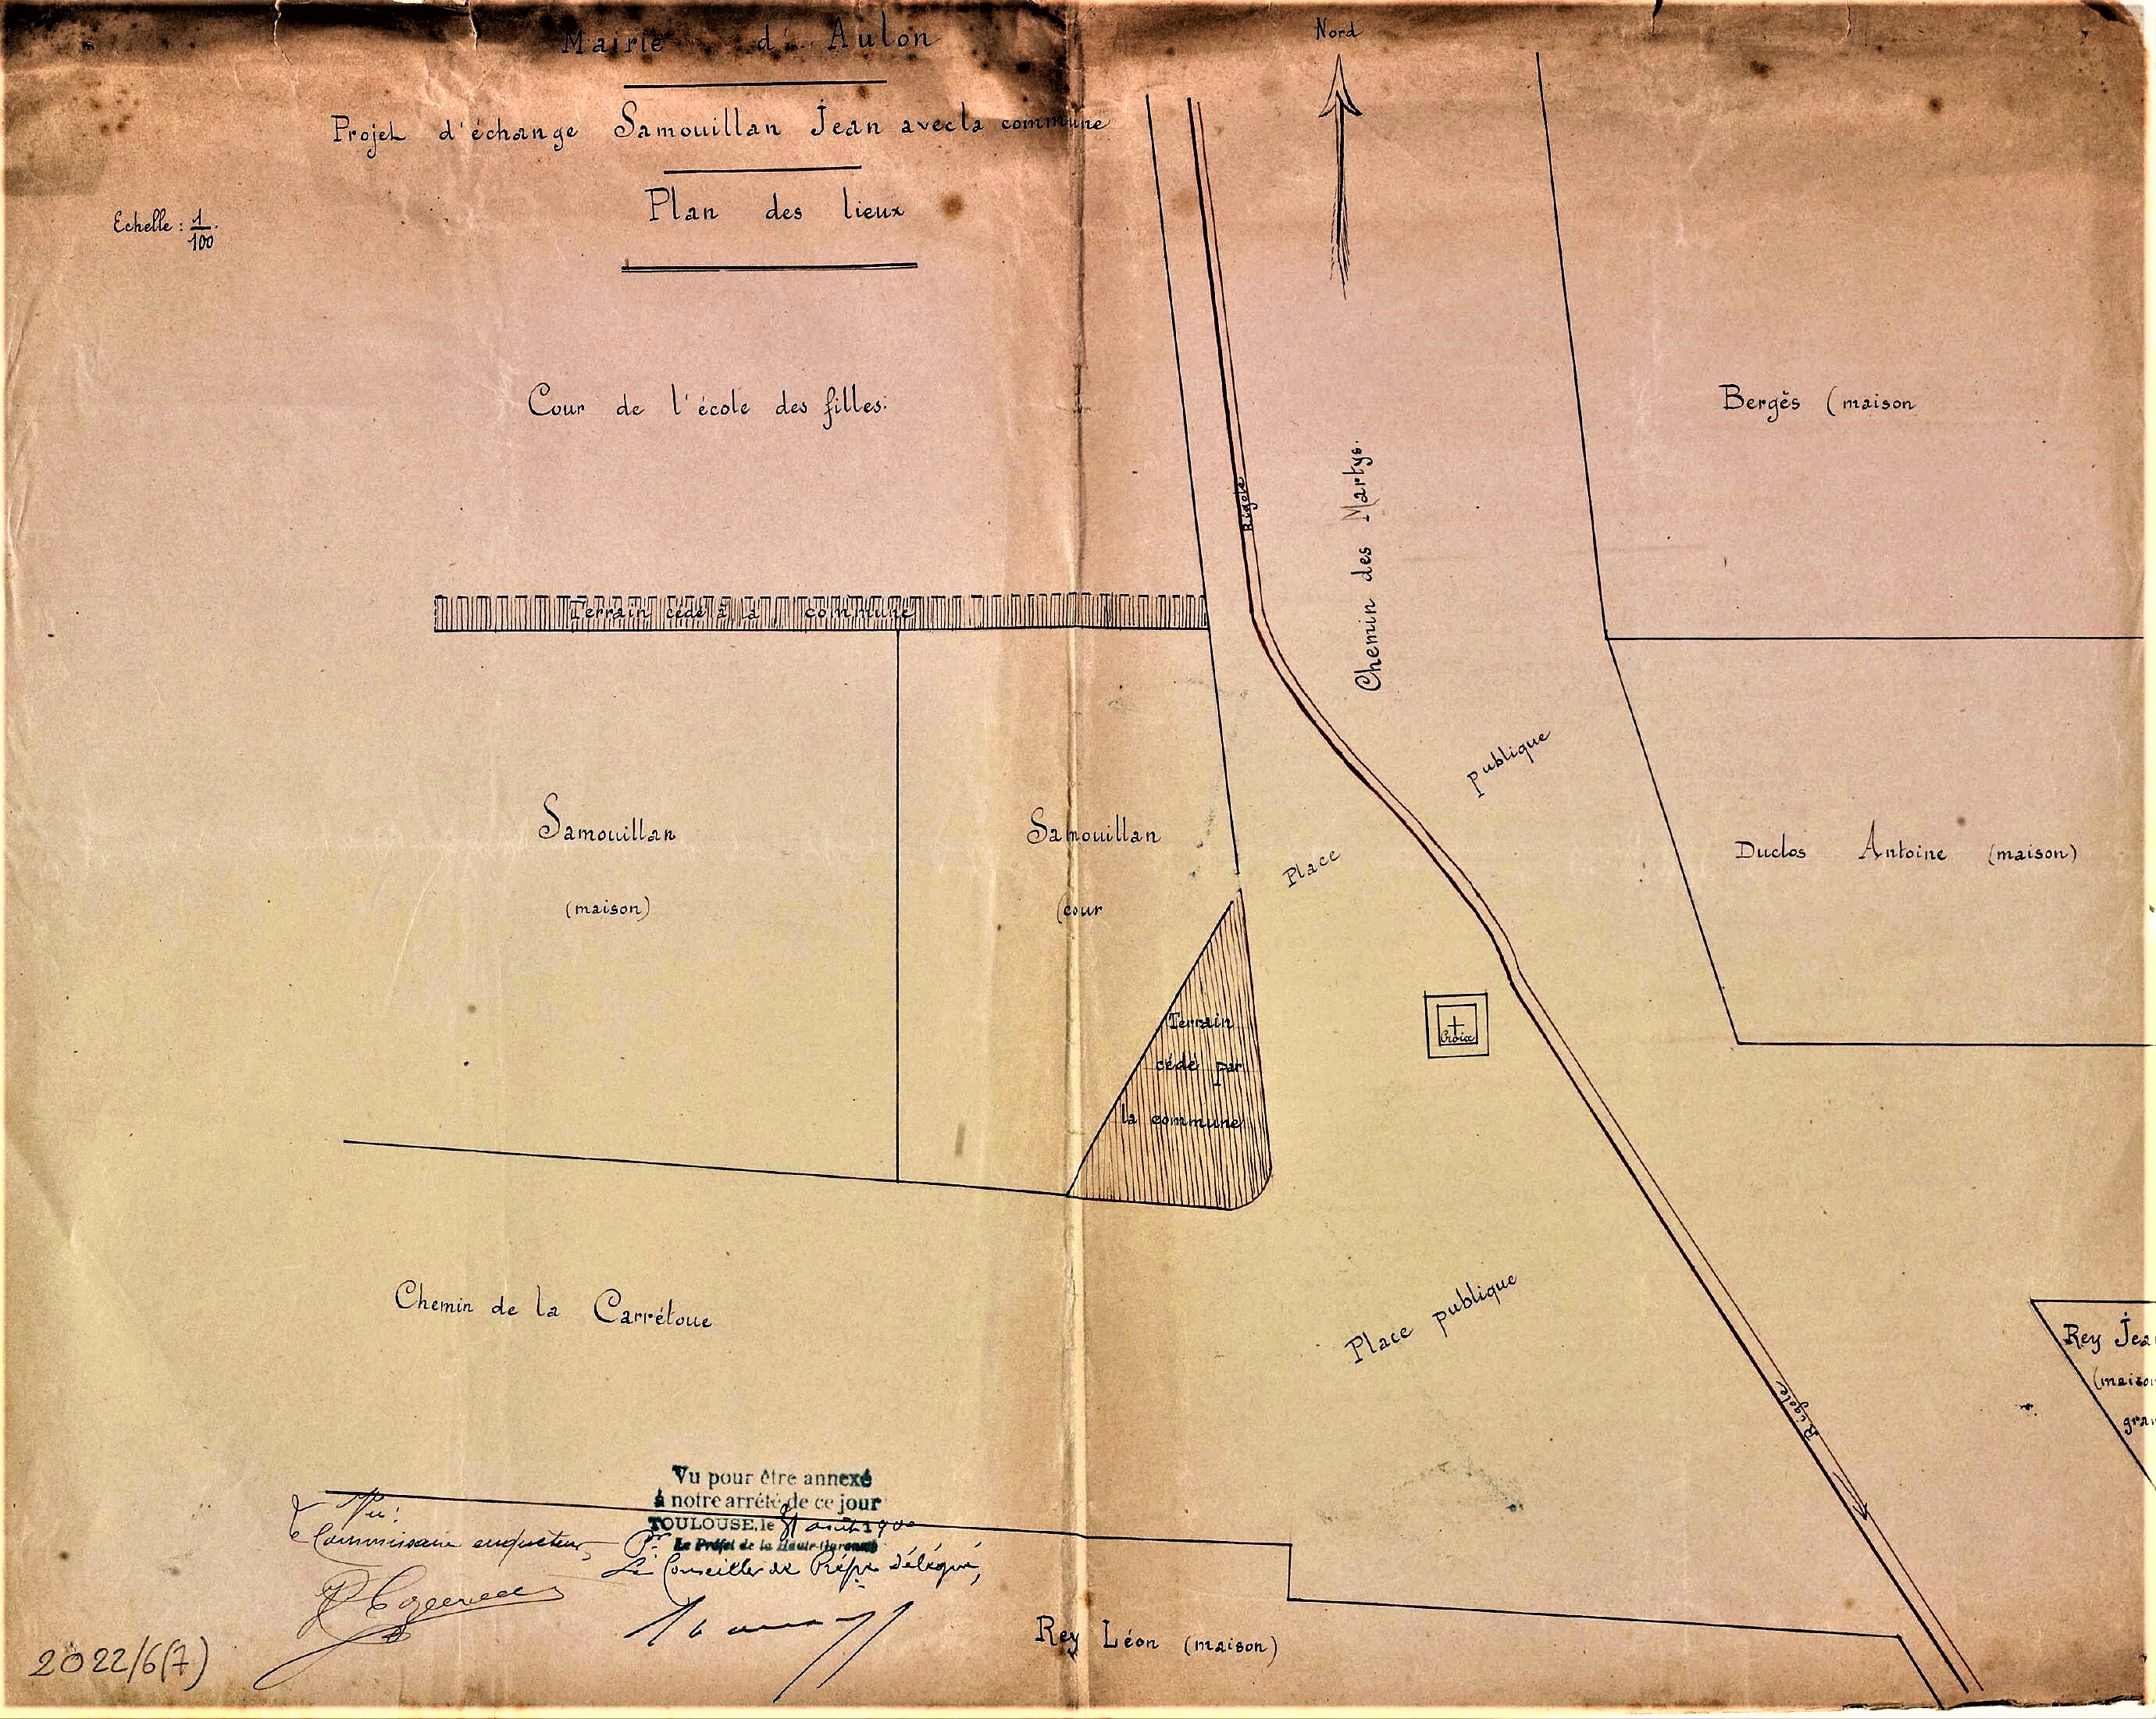 Mairie d'Aulon
Nord
Projet d'échange Samouillan Jean avec la commune
Plan des lieux
Echelle : 1/100.
Cour de l'école des filles.
Bergès (maison
Rigole
Chemin des Martys.
Terrain cédé à la commune
Place publique
Samouillan
(maison)
Samouillan
(cour
Duclos Antoine (maison)
Terrain
cédé par
la commune
Croix
Chemin de la Carrétoue
Place publique
Rey Jea
(maiso
gra
Rigole
Vu pour être annexé
à notre arrêté de ce jour
TOULOUSE, le 31 août 1900
Le Préfet de la Haute-Garonne
Vu:
Le Commissaire enquêteur,
Pr
Le Conseiller de Préfre délégué,
Rey Léon (maison)
2022/6(7)